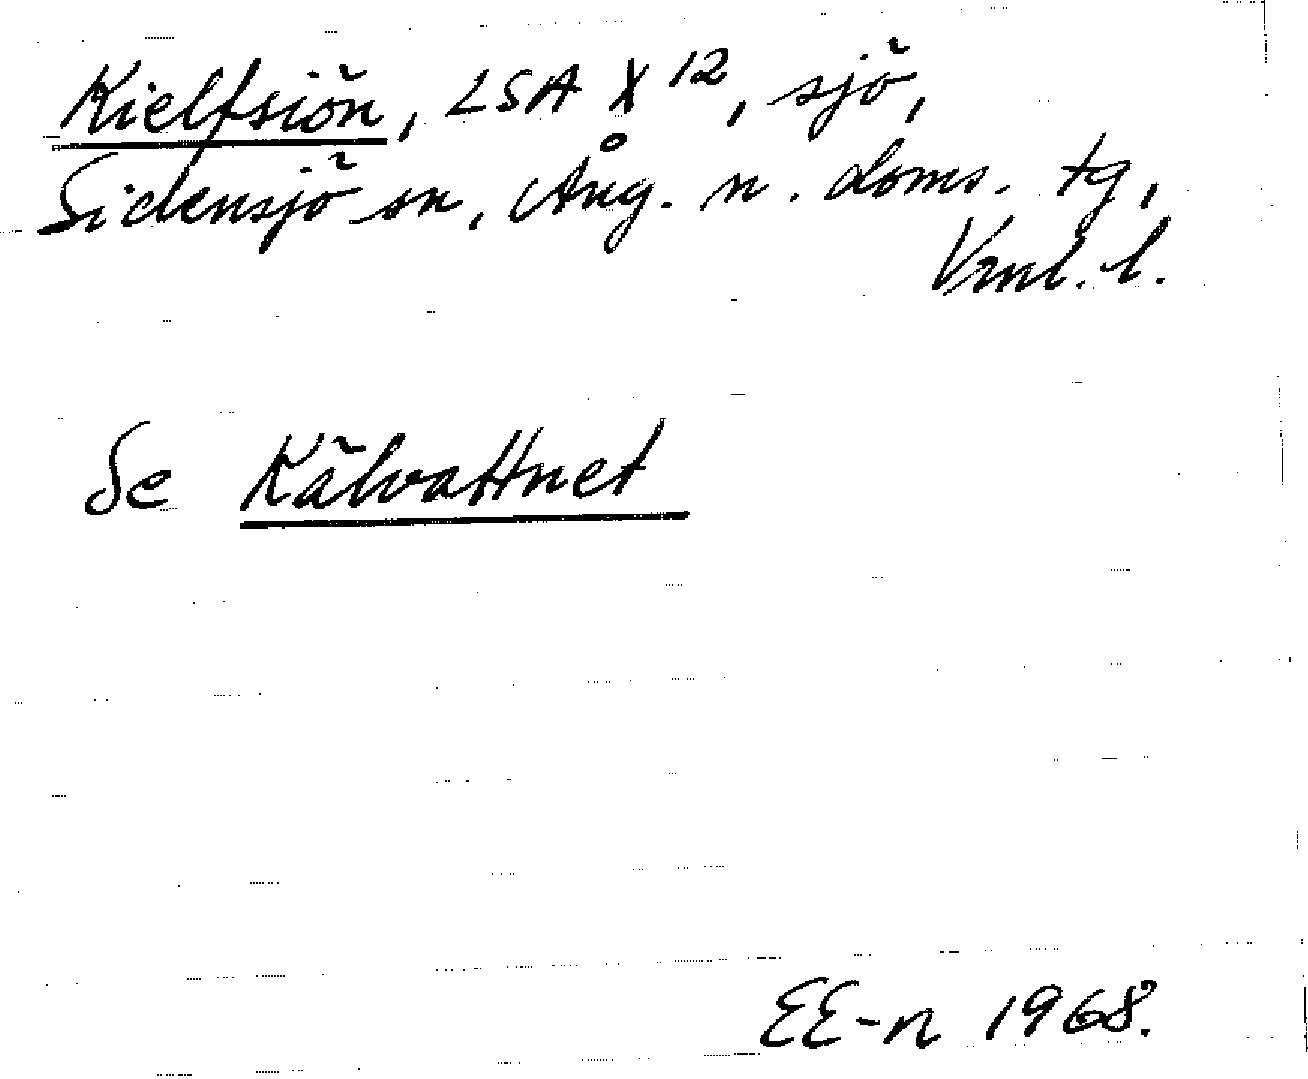 Kielfsiön, LSA X 12, sjö,
Sidensjö sn, Ång. n. doms. tg,
Vrnl. l.
Se Kälvattnet
EE-n 1968.